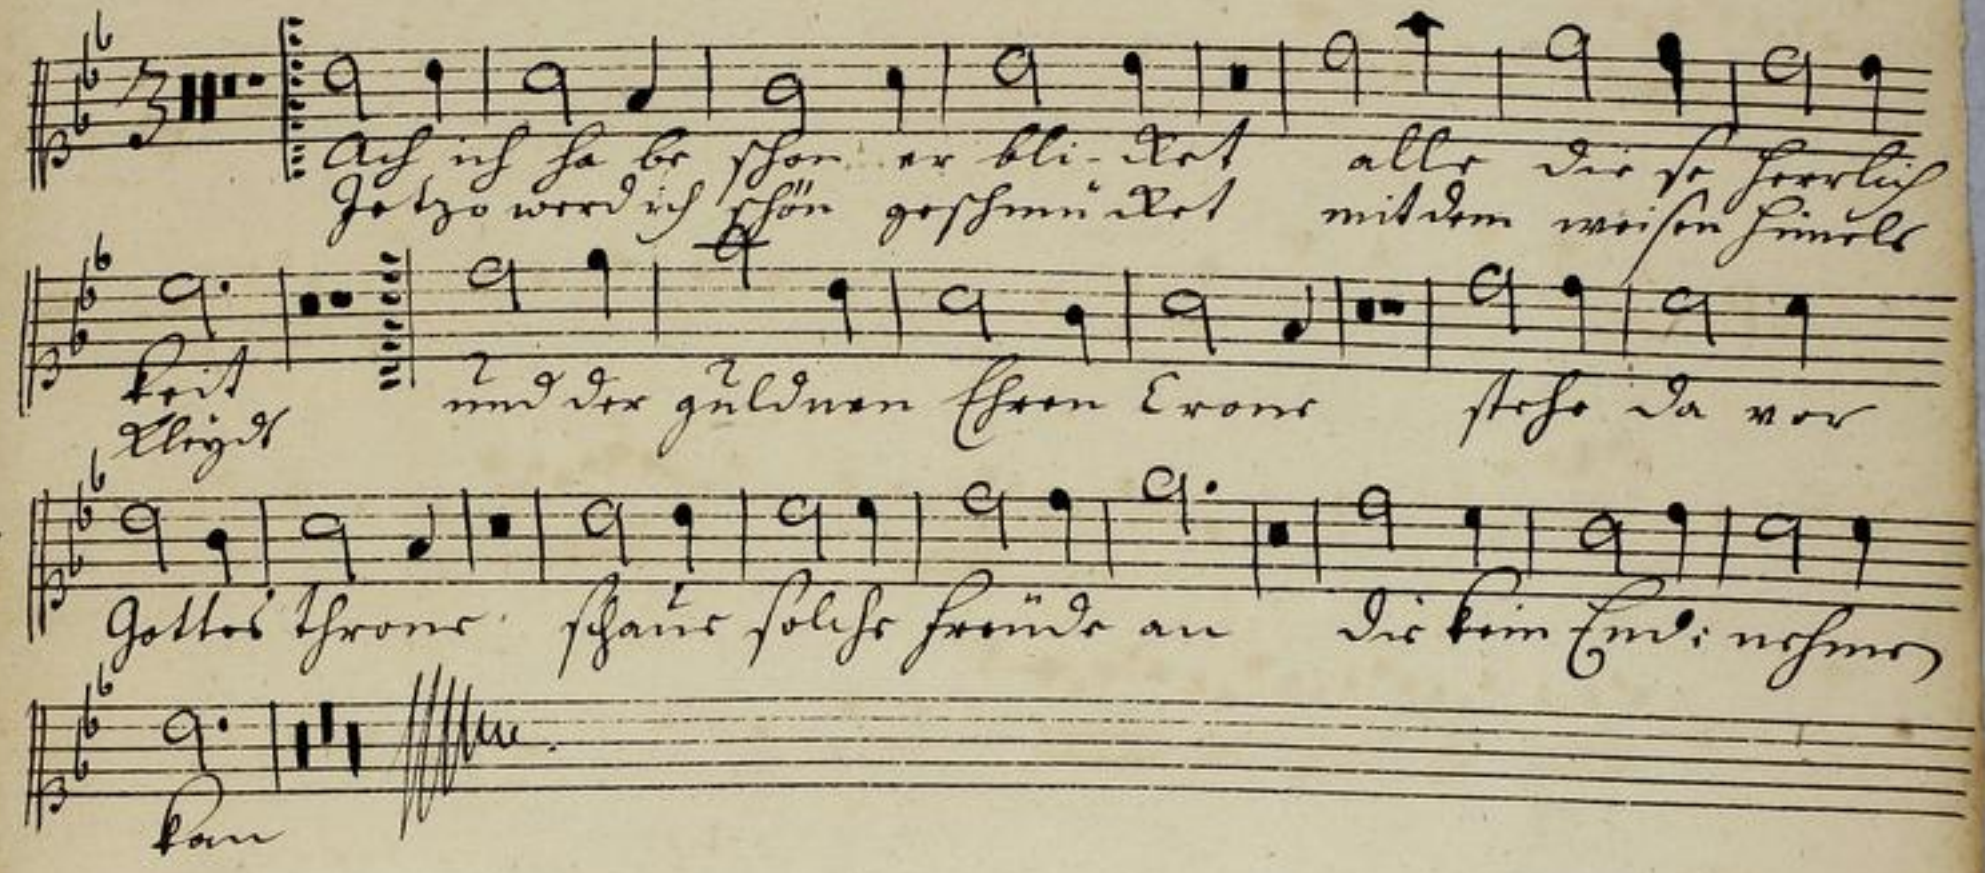 Ach ich ha be schon er bli-cket alle die se herrlich
Jetzo werd ich schön geschmücket mit dem weisen himels
keit und der güldnen Ehren Crone stehe da vor
Kleyde
Gottes throne schaue solche freude an die kein End: nehmen
kan